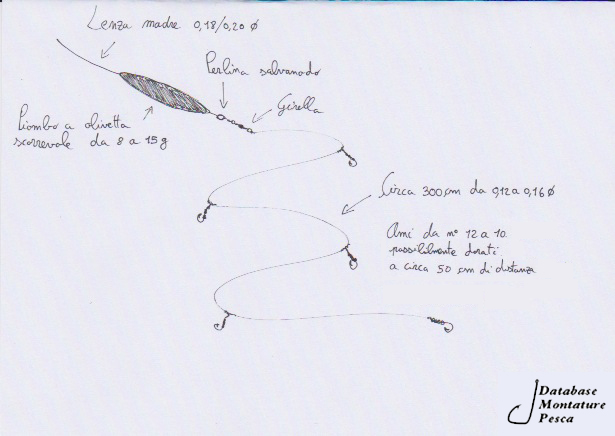 Lenza madre 0,18/0,20 Ø
Perlina salvanodo
Girella
Piombo a olivetta
scorrevole da 8 a 15 g
Circa 300 cm da 0,12 a 0,16 Ø
Ami da n° 12 a 10
possibilmente dorati
a circa 50 cm di distanza
Database
Montature
Pesca